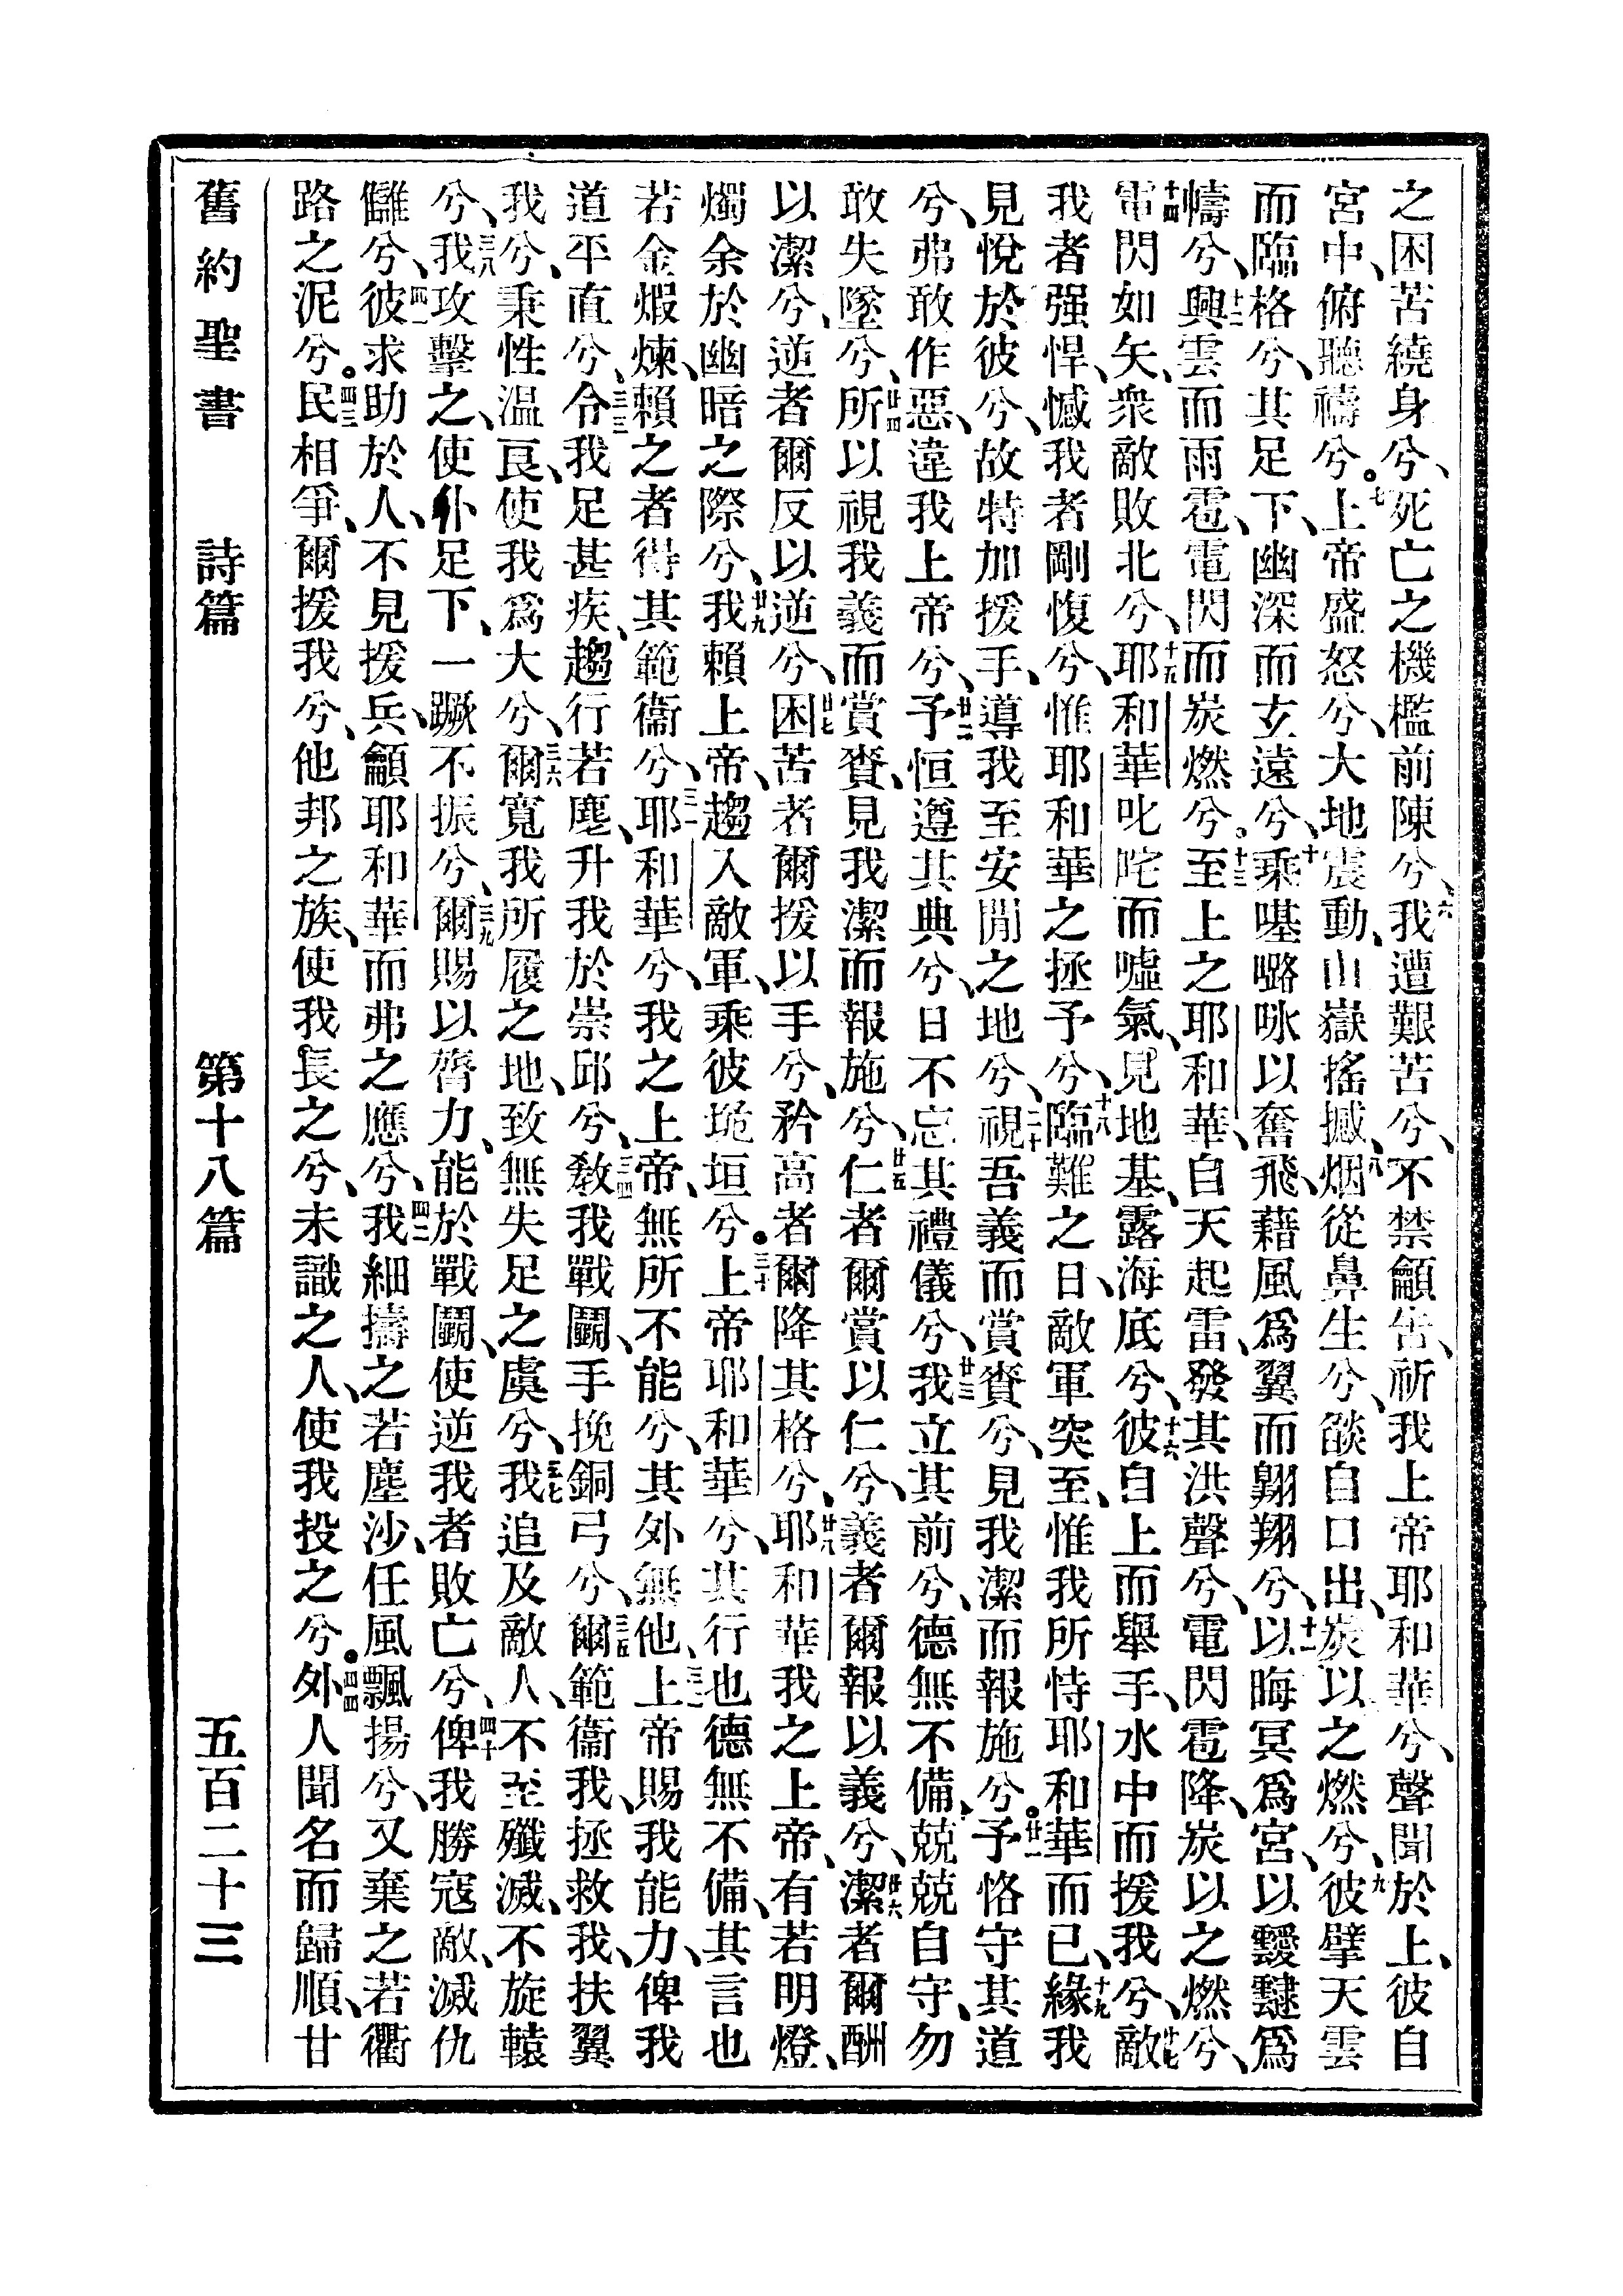 之困苦繞身兮、死亡之機檻前陳兮、六我遭艱苦兮、不禁籲告、祈我上帝耶和華兮、聲聞於上、彼自
宮中、俯聽禱兮。七上帝盛怒兮、大地震動、山嶽搖撼、八烟從鼻生兮、燄自口出、炭以之燃兮、九彼擘天雲
而臨格兮、其足下、幽深而玄遠兮、十乘𠼻𡀔咏以奮飛、藉風爲翼而翱翔兮、十一以晦冥爲宮、以靉靆爲
幬兮、十二興雲而雨雹、電閃而炭燃兮。十三至上之耶和華、自天起雷、發其洪聲兮、電閃雹降、炭以之燃兮、
十四電閃如矢、衆敵敗北兮、十五耶和華叱咤而噓氣、見地基、露海底兮、十六彼自上而舉手、水中而援我兮、十七敵
我者强悍、憾我者剛愎兮、惟耶和華之拯予兮、十八臨難之日、敵軍突至、惟我所恃耶和華而已、十九緣我
見悅於彼兮、故特加援手、導我至安閒之地兮、二十視吾義而賞賚兮、見我潔而報施兮。廿一予恪守其道
兮、弗敢作惡、違我上帝兮、廿二予恒遵其典兮、日不忘其禮儀兮、廿三我立其前兮、德無不備、兢兢自守、勿
敢失墜兮、廿四所以視我義而賞賚、見我潔而報施兮、廿五仁者爾賞以仁兮、義者爾報以義兮、廿六潔者爾酬
以潔兮、逆者爾反以逆兮、廿七困苦者爾援以手兮、矜高者爾降其格兮、廿八耶和華我之上帝、有若明燈、
燭余於幽暗之際兮、廿九我賴上帝、趨入敵軍、乘彼垝垣兮。三十上帝耶和華兮、其行也德無不備、其言也
若金煆煉、賴之者得其範衞兮、三一耶和華兮、我之上帝、無所不能兮、其外無他、三二上帝賜我能力、俾我
道平直兮、三三令我足甚疾、趨行若麀、升我於崇邱兮、三四敎我戰鬬、手挽銅弓兮、三五爾範衞我、拯救我、扶翼
我兮、秉性溫良、使我爲大兮、三六爾寬我所履之地、致無失足之虞兮、三七我追及敵人、不至殲滅、不旋轅
兮、三八我攻擊之、使仆足下、一蹶不振兮、三九爾賜以膂力、能於戰鬬、使逆我者敗亡兮、四十俾我勝寇敵、滅仇
讎兮、四一彼求助於人、不見援兵、籲耶和華而弗之應兮、四二我細擣之若塵沙、任風飄揚兮、又棄之若衢
路之泥兮。四三民相爭、爾援我兮、他邦之族、使我長之兮、未識之人、使我投之兮。四四外人聞名而歸順、甘
舊約聖書 詩篇 第十八篇 五百二十三